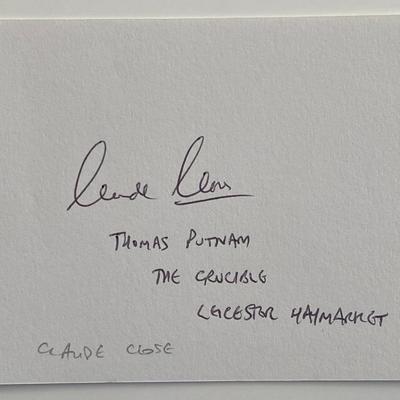 Claude Close
THOMAS PUTNAM
THE CRUCIBLE
LEICESTER HAYMARKET
CLAUDE CLOSE